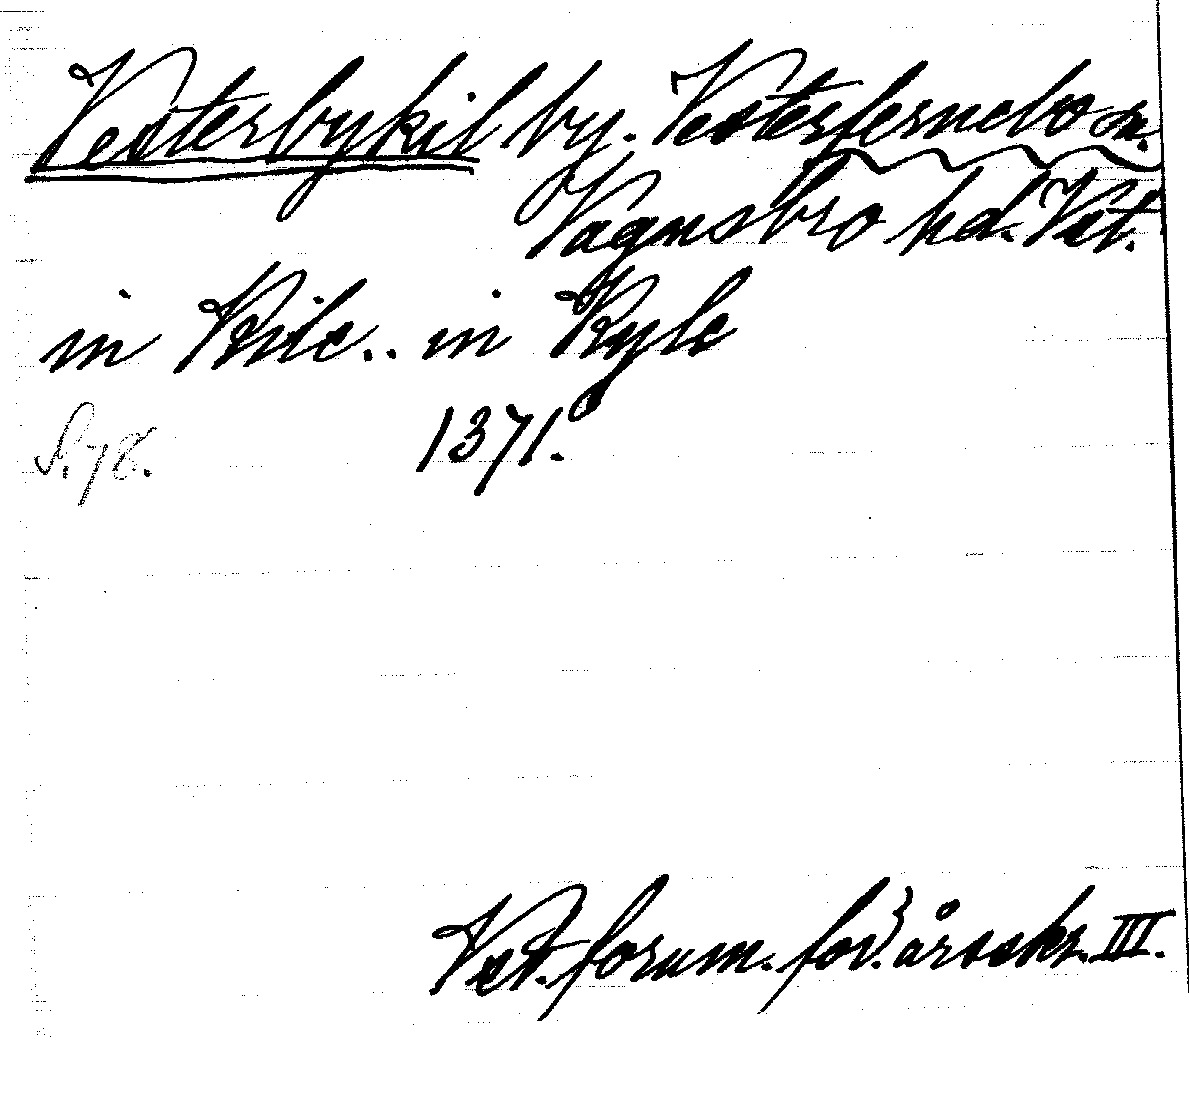 Vesterbykil by. Vesterfernebo sn.
Vagnsbro hd. Vst.
in Kile.. in Kyle
S. 78. 1371.
Vst. fornm. för. årsskr. III.